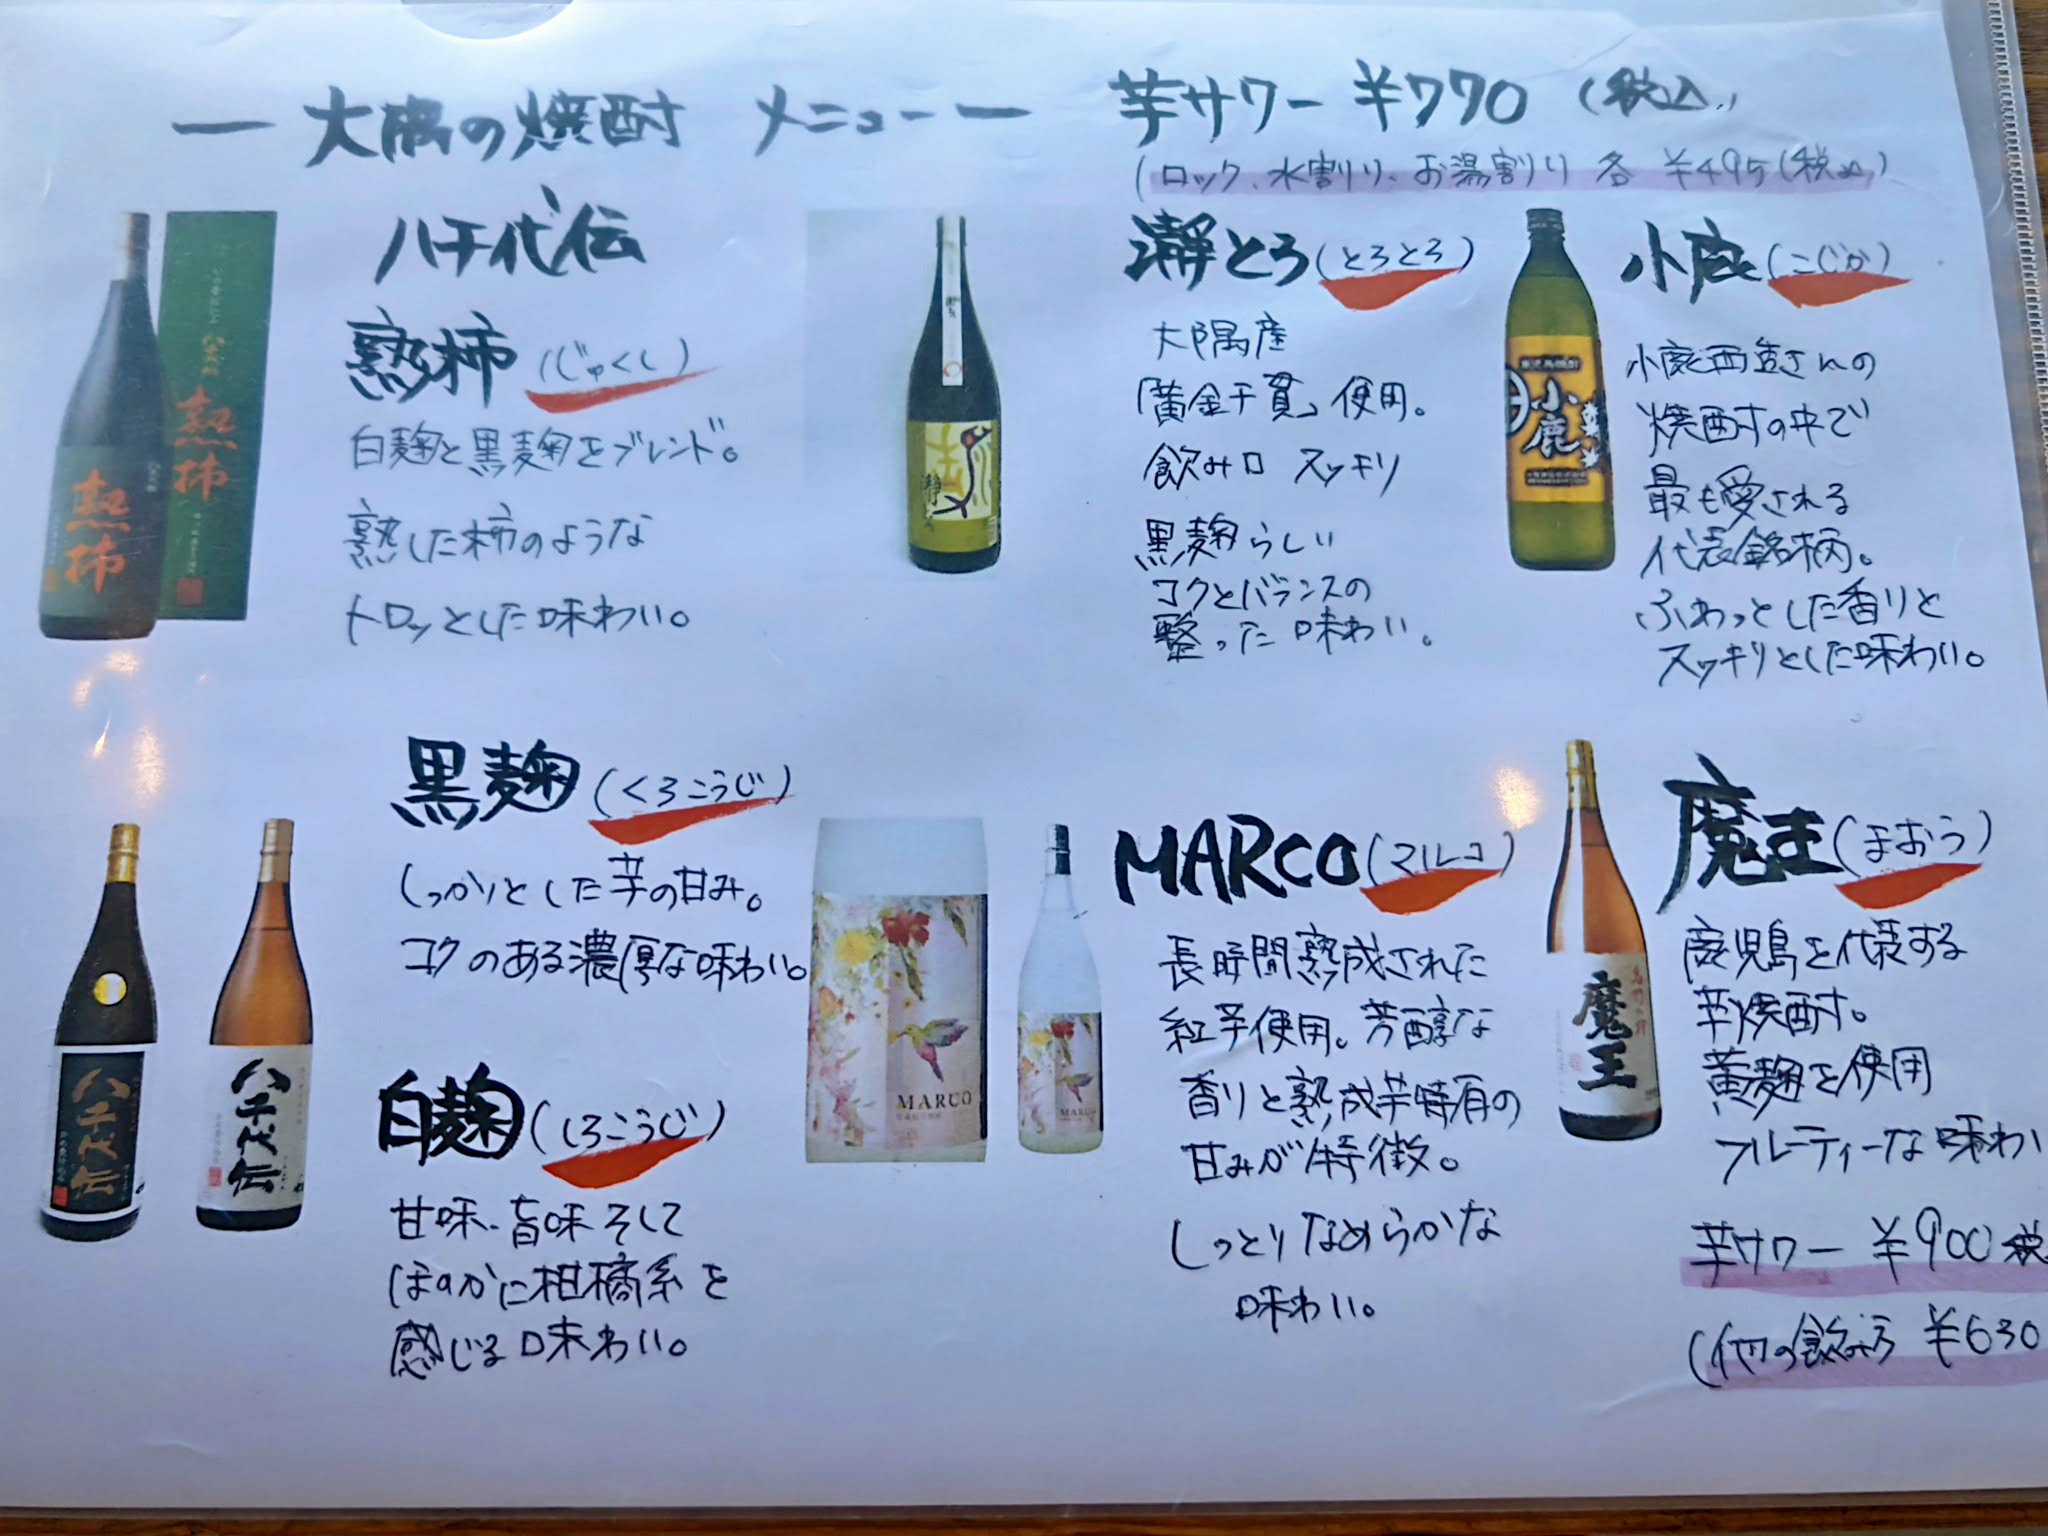 ー 大隅の焼酎 メニュー ー
芋サワー ¥770 (税込)
(ロック、水割り、お湯割り 各 ¥495(税込)
八千代伝
熟柿 (じゅくし)
白麹と黒麹をブレンド。
熟した柿のような
トロッとした味わい。
熟柿
熟柿
瀞とろ(とろとろ)
大隅産
「黄金千貫」使用。
飲み口 スッキリ
黒麹らしい
コクとバランスの
整った 味わい。
小鹿(こじか)
小鹿酒造さんの
焼酎の中で
最も愛される
代表銘柄。
ふわっとした香りと
スッキリとした味わい。
小鹿
黒麹(くろこうじ)
しっかりとした芋の甘み。
コクのある濃厚な味わい。
白麹(しろこうじ)
甘味、旨味 そして
ほのかに柑橘系を
感じる味わい。
八千代伝
八千代伝
MARCO(マルコ)
長時間熟成された
紅芋使用。芳醇な
香りと熟成芋特有の
甘みが特徴。
しっとりなめらかな
味わい。
MARCO
MARCO
魔王(まおう)
鹿児島を代表する
芋焼酎。
黄麹を使用
フルーティーな味わい
芋サワー ¥900 税
(他の飲み方 ¥630
魔王